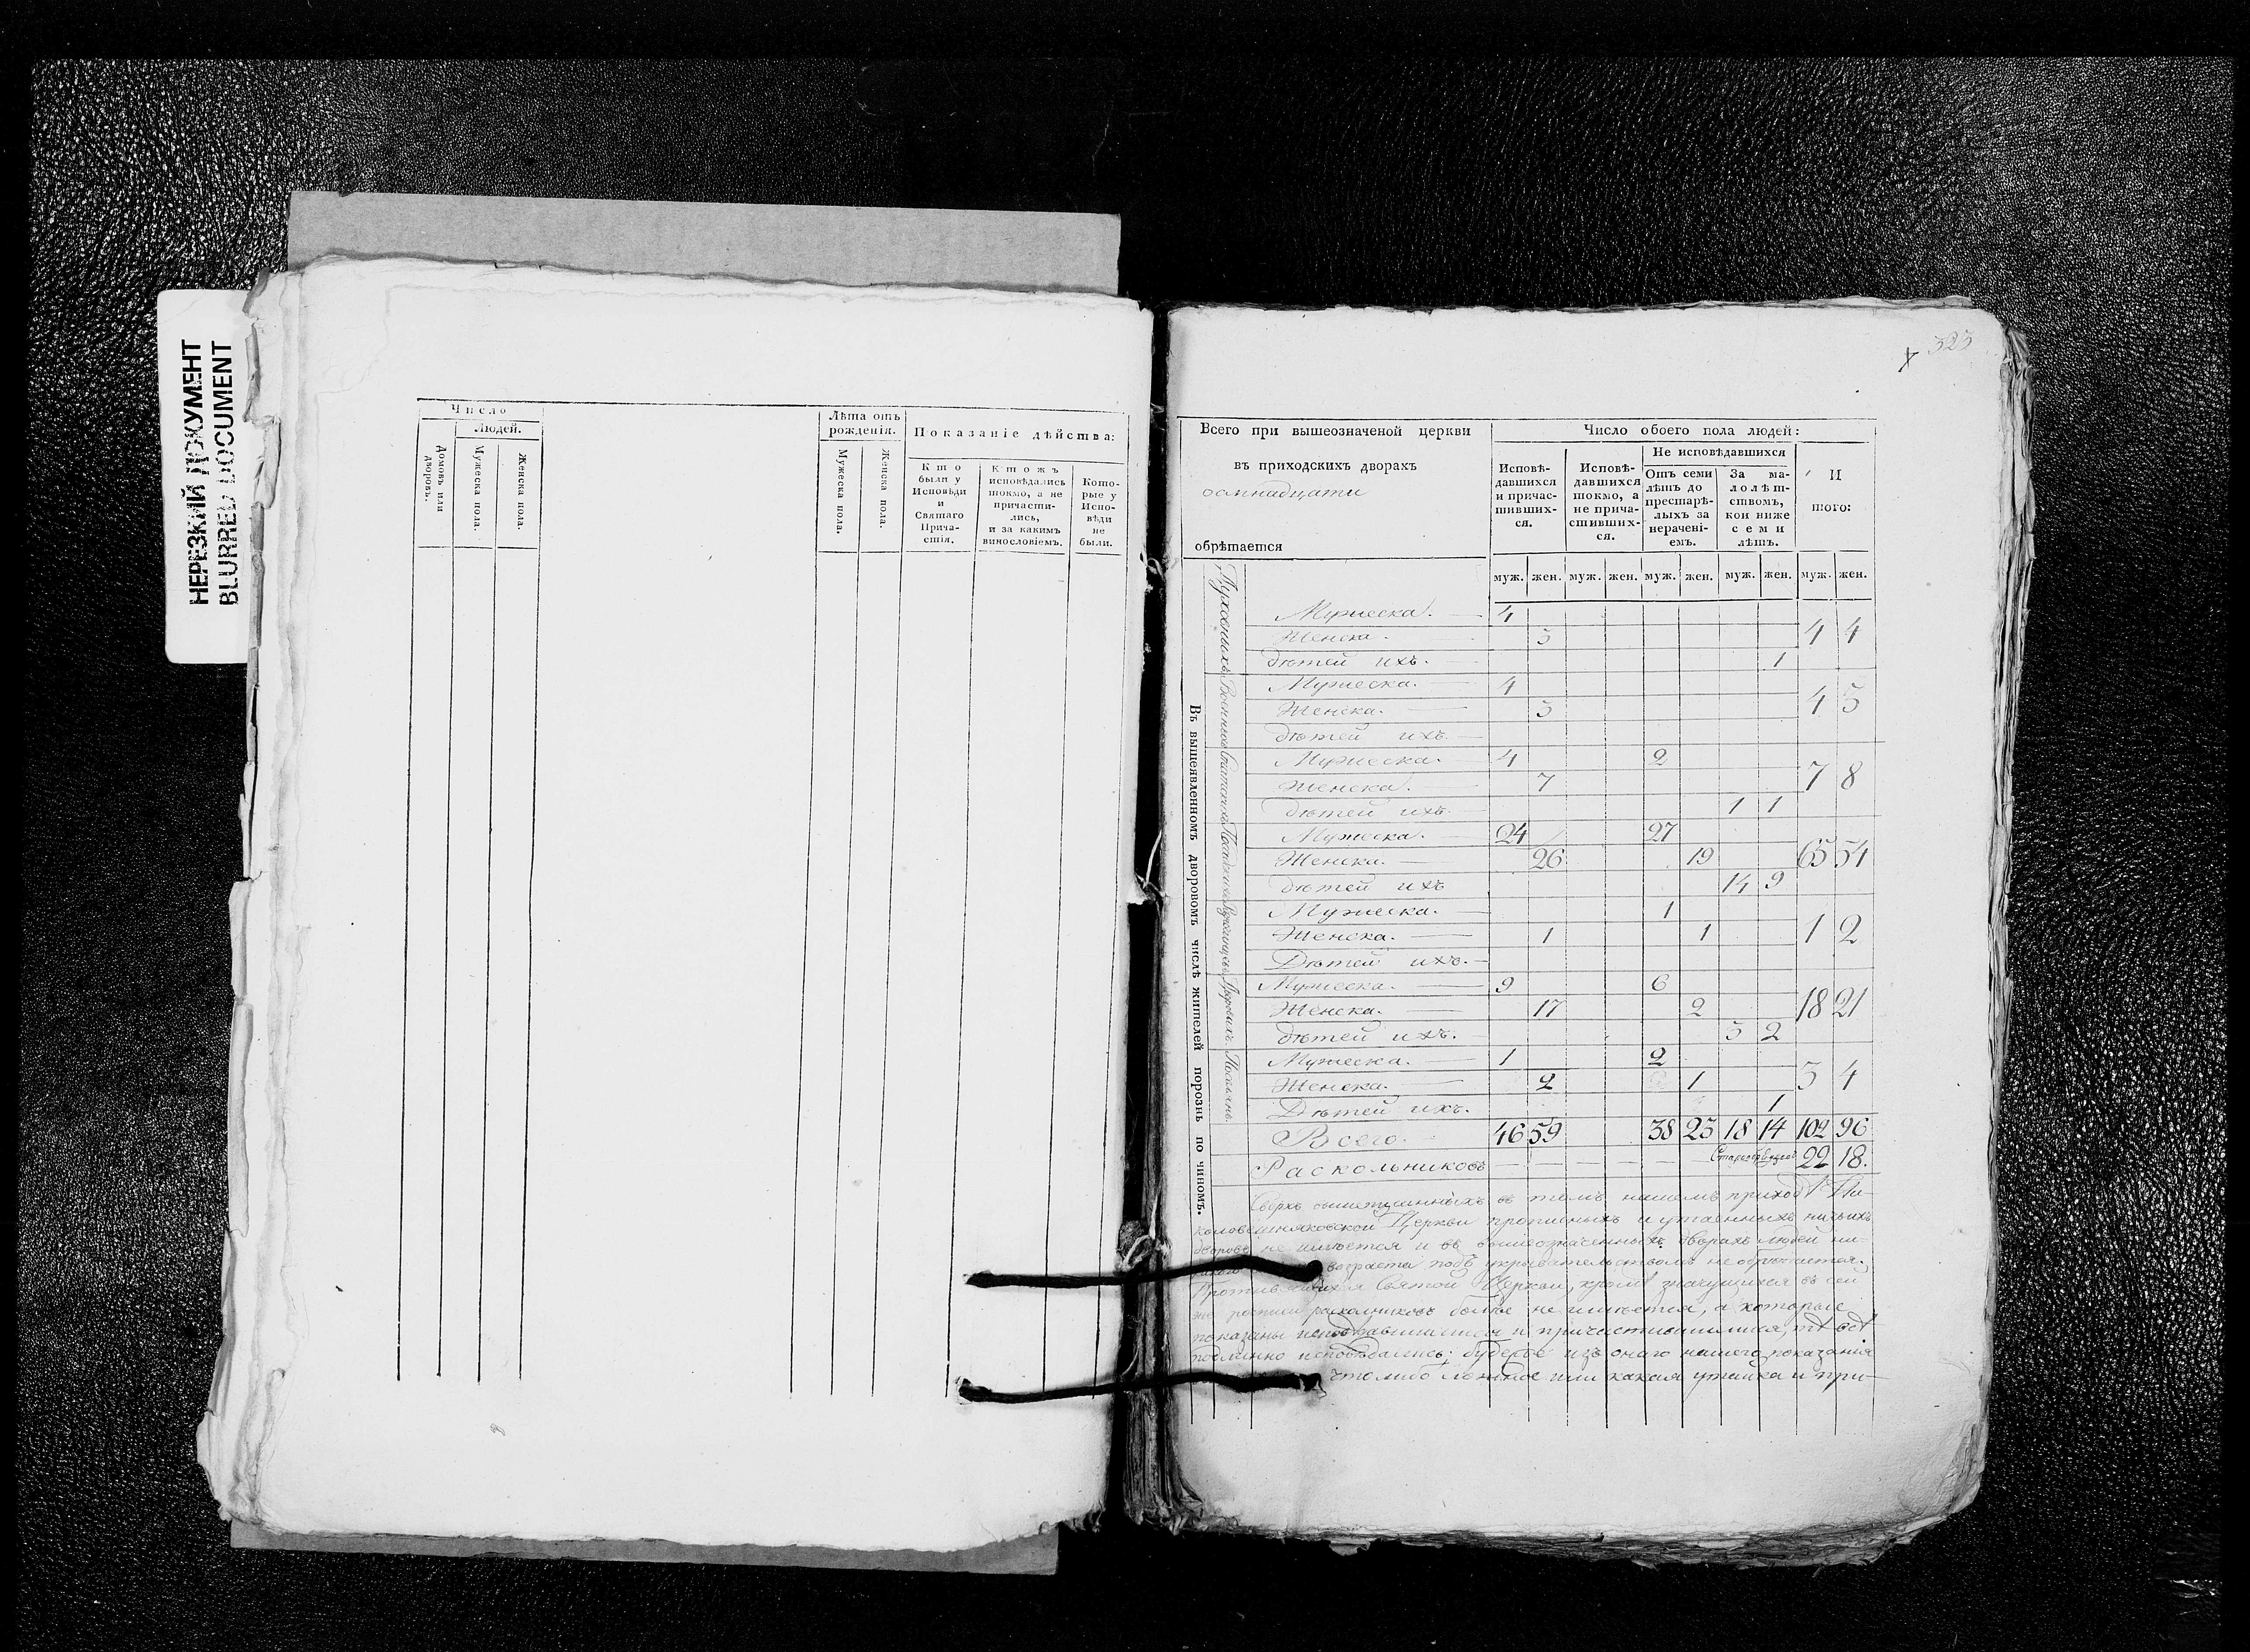 НЕРЕЗКИЙ ДОКУМЕНТ
BLURRED DOCUMENT
Число
Людей.
Домовъ или дворовъ.
Мужеска пола.
Женска пола.
Лѣта отъ рожденія.
Мужеска пола.
Женска пола.
Показаніе дѣйства:
Кто были у Исповѣди и Святаго Прича-стія.
Ктожъ исповѣдались токмо, а не причасти-лись, и за какимъ винословіемъ.
Кото-рые у Испо-вѣди не были.
323
Всего при вышеозначеной церкви
въ приходскихъ дворахъ
осмнадцати
обрѣтается
Число обоего пола людей:
Исповѣ-давшихся и причас-тивших-ся.
Исповѣ-давшихся токмо, а не прича-стивших-ся.
Не исповѣдавшихся
Отъ семи лѣтъ до престарѣ-лыхъ за нерачені-емъ.
За мa-лолѣт-ствомъ, кои ниже семи лѣтъ.
И того:
муж. жен. муж. жен. муж. жен. муж. жен. муж. жен.
Въ вышеявленномъ дворовомъ числѣ жителей порознь по чиномъ.
Духовныхъ
Мужеска. 4
Женска. 3 4 4
дѣтей ихъ. 1
Военныхъ
Мужеска. 4
Женска. 3 4 3
дѣтей ихъ.
Статскихъ
Мужеска. 4 2
Женска. 7 7 8
дѣтей ихъ. 1 1
Мужеска. 24 27
Женска. 26 19 65 54
дѣтей ихъ 14 9
Мужеска. 1
Женска. 1 1 1 2
Дѣтей ихъ.
Дворовыхъ.
Мужеска. 9 6
Женска. 17 2 18 21
дѣтей ихъ. 3 2
Поселянъ.
Мужеска. 1 2
Женска. 2 1 3 4
Дѣтей ихъ. 1
Всего. 46 59 38 23 18 14 102 96
Раскольниковъ 22 18.
Сверхъ вышеписанныхъ въ томъ нашемъ приходѣ
Церкви прописныхъ и утаенныхъ ничьихъ
дворовъ не имѣется и въ вышеозначенныхъ дворахъ людей ни-
возраста подъ укрывательствомъ не обрѣтается.
Святой Церкви, кромѣ значущихся въ сей
же росписи раскольниковъ болѣе не имѣется, а которые
показаны исповѣдавшимися и причастившимися, тѣ всѣ
подлинно исповѣдались; изъ онаго нашего показанія
что либо ложное или какая утайка и при-